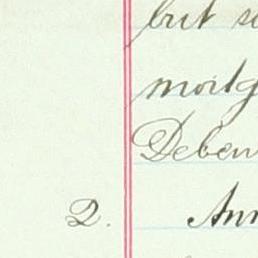 but
mortg
Deben
2. Ann